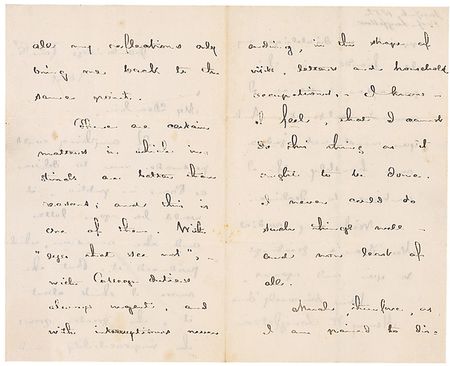 all my reflections only
bring me back to the
same point.
There are certain
matters in which in-
stincts are better than
reasons; and this is
one of them. With
"eyes that see not",—
with College duties
always urgent, and
with interruptions never
ending, in the shape of
visits, letters and household
occupations,— I know—
I feel, that I cannot
do this thing as it
ought to be done.
I never could do
such things well—
and now least of
all.
Much, therefore, as
I am pained to dis-